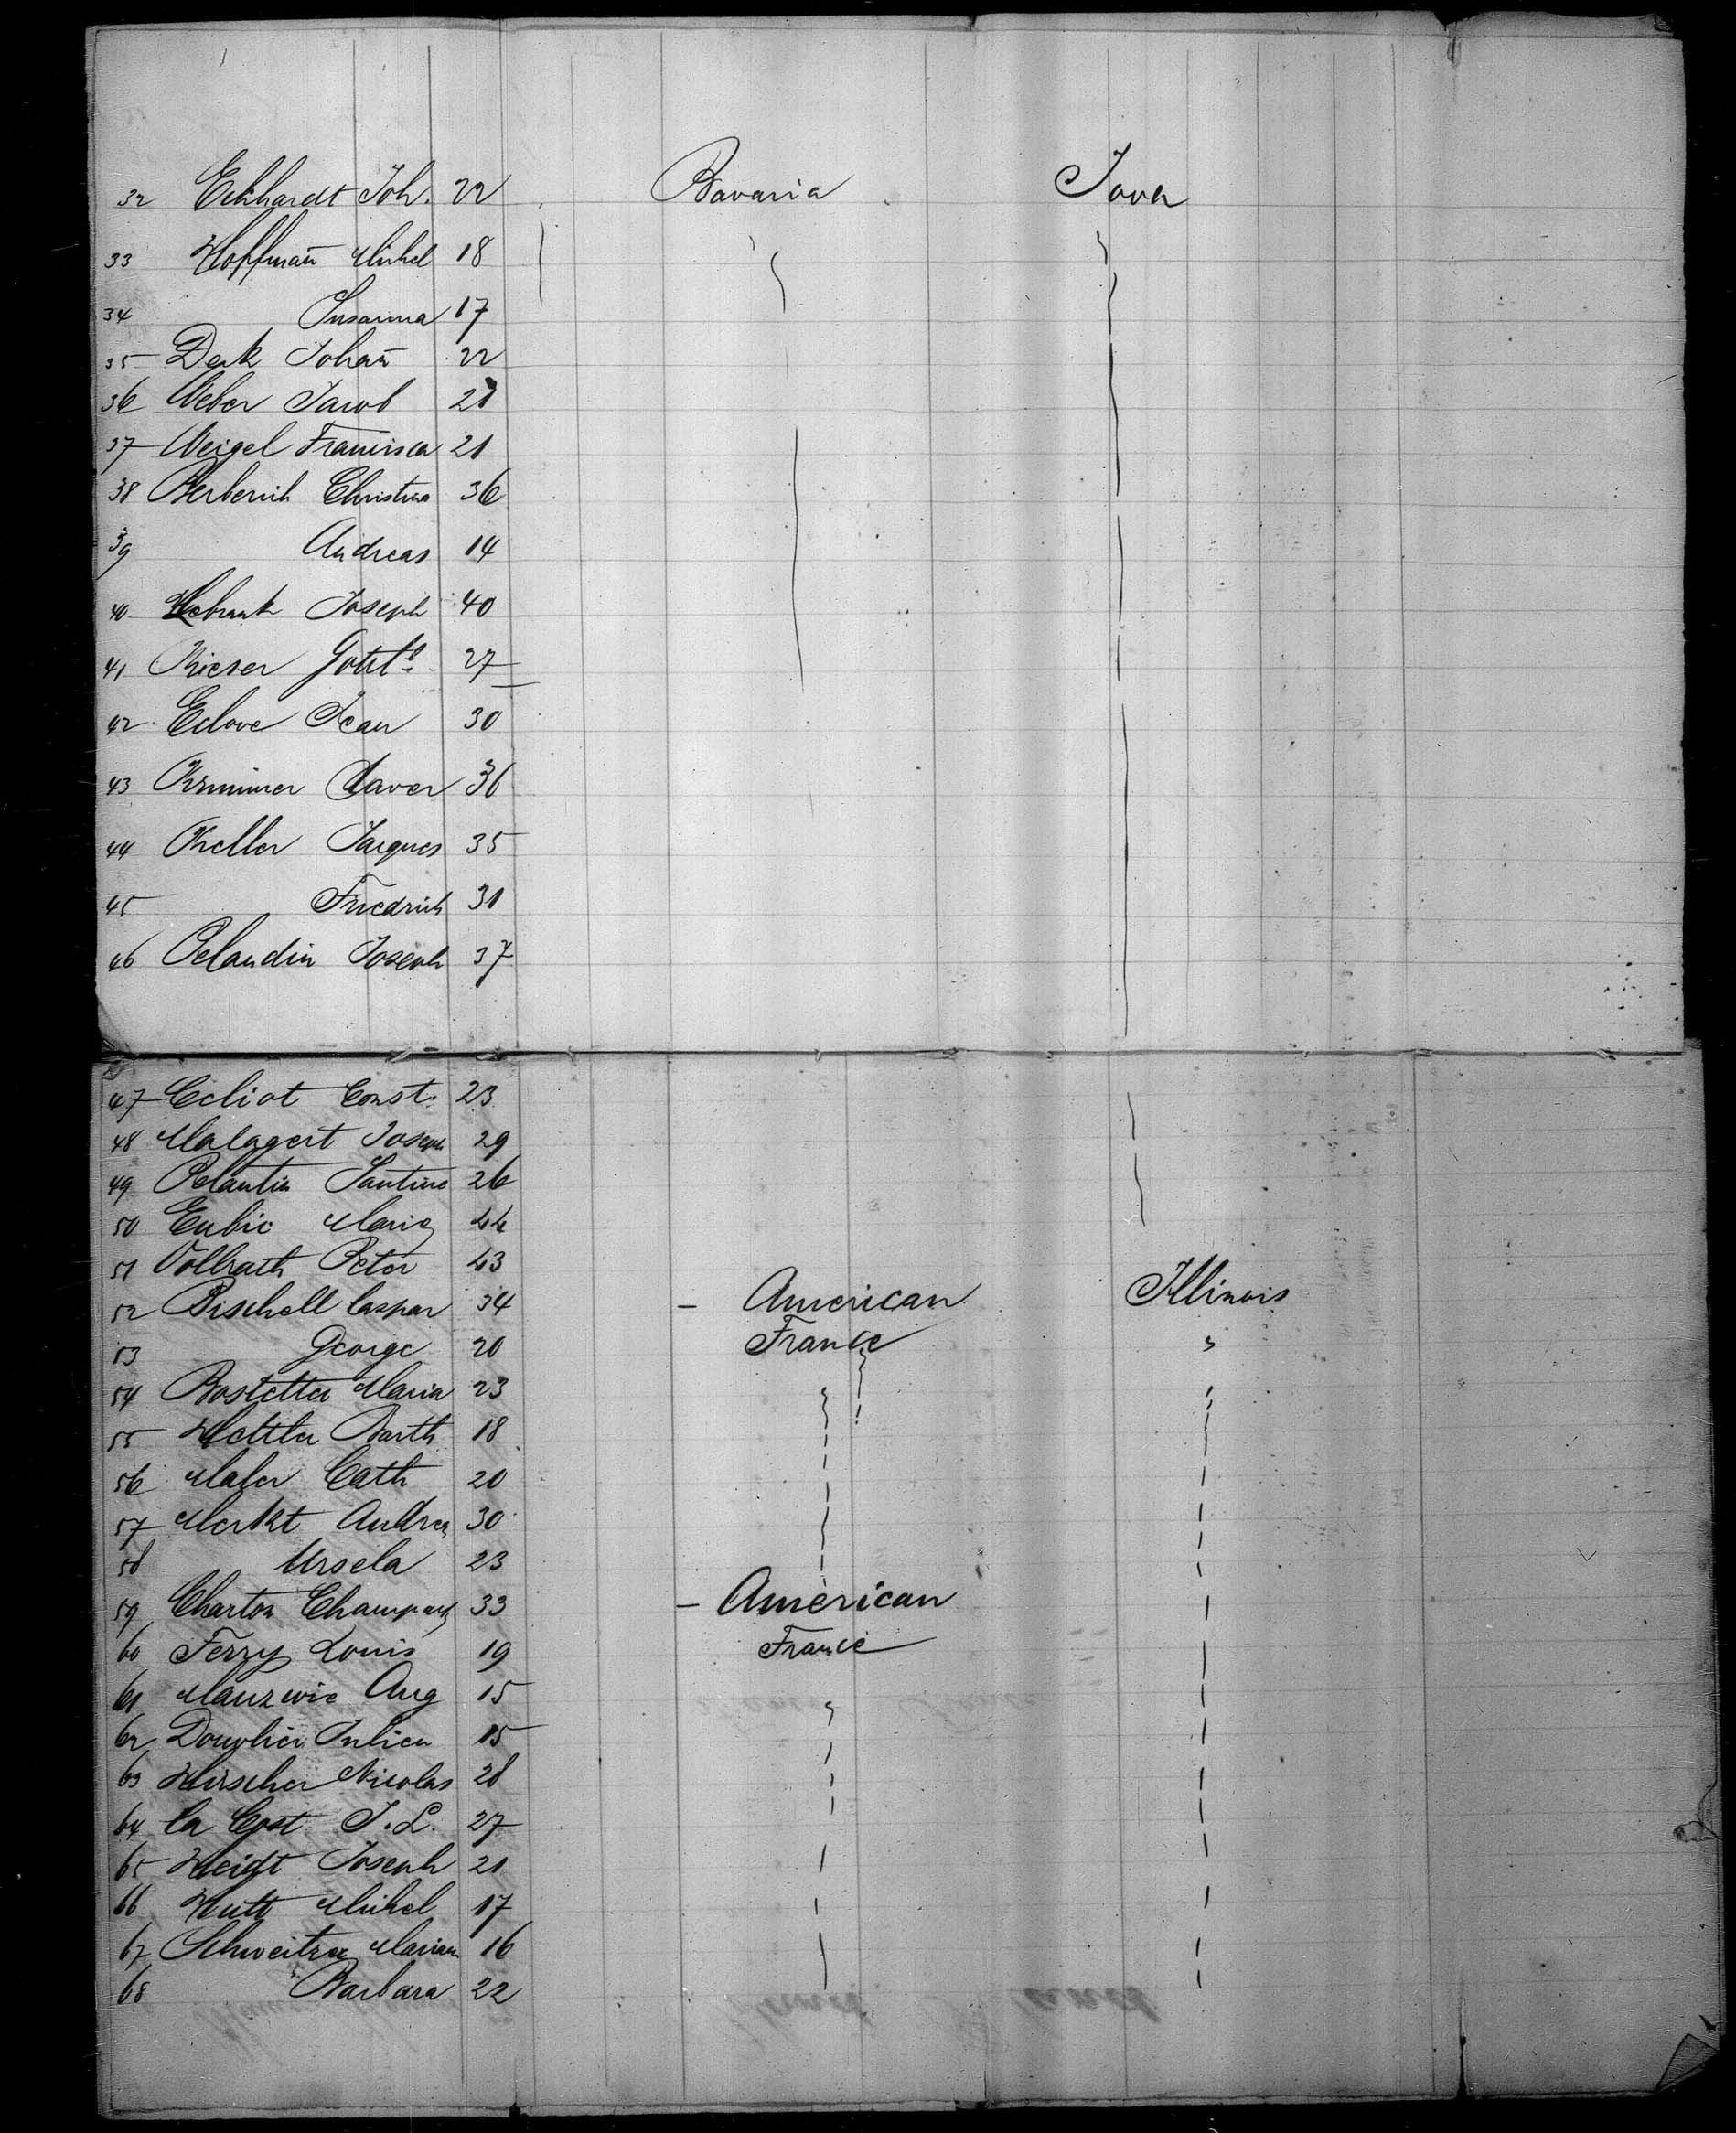 32 Eckhardt Joh. 22 Bavaria Iowa
33 Hoffman̄ Michel 18
34 Susanna 17
35 Derk Johan̄ 22
36 Weber Jacob
37 Weigel Francisca 21
38 Berberich Christina 36
39 Andreas 14
40 Joseph 40
41 Kieser Gottl. 27
42 Eclove Jean 30
43 Xaver 36
44 Keller Jacques 35
45 Friedrich 31
46 Pelandin Joseph 37
47 Celiot Const. 23
48 Malagert Joseph 29
49 Pelantin 26
50 Eubic Marie 44
51 Vollrath Peter 43
52 Bischell Caspar 34 — American Illinois
53 George 20 France "
54 Bostetter Maria 23
55 Hettler Barth 18
56 Maler Cath 20
57 Merkt Andrea 30
58 Ursela 23
59 Charton 33 — American
60 Ferry Louis 19 France
61 Aug 15
62 Julien 15
63 Hirscher Nicolas 28
64 La Cost J. L. 27
65 Heidt Joseph 21
66 Hutt Michel 17
67 Schweitzer Mariann 16
68 Barbara 22